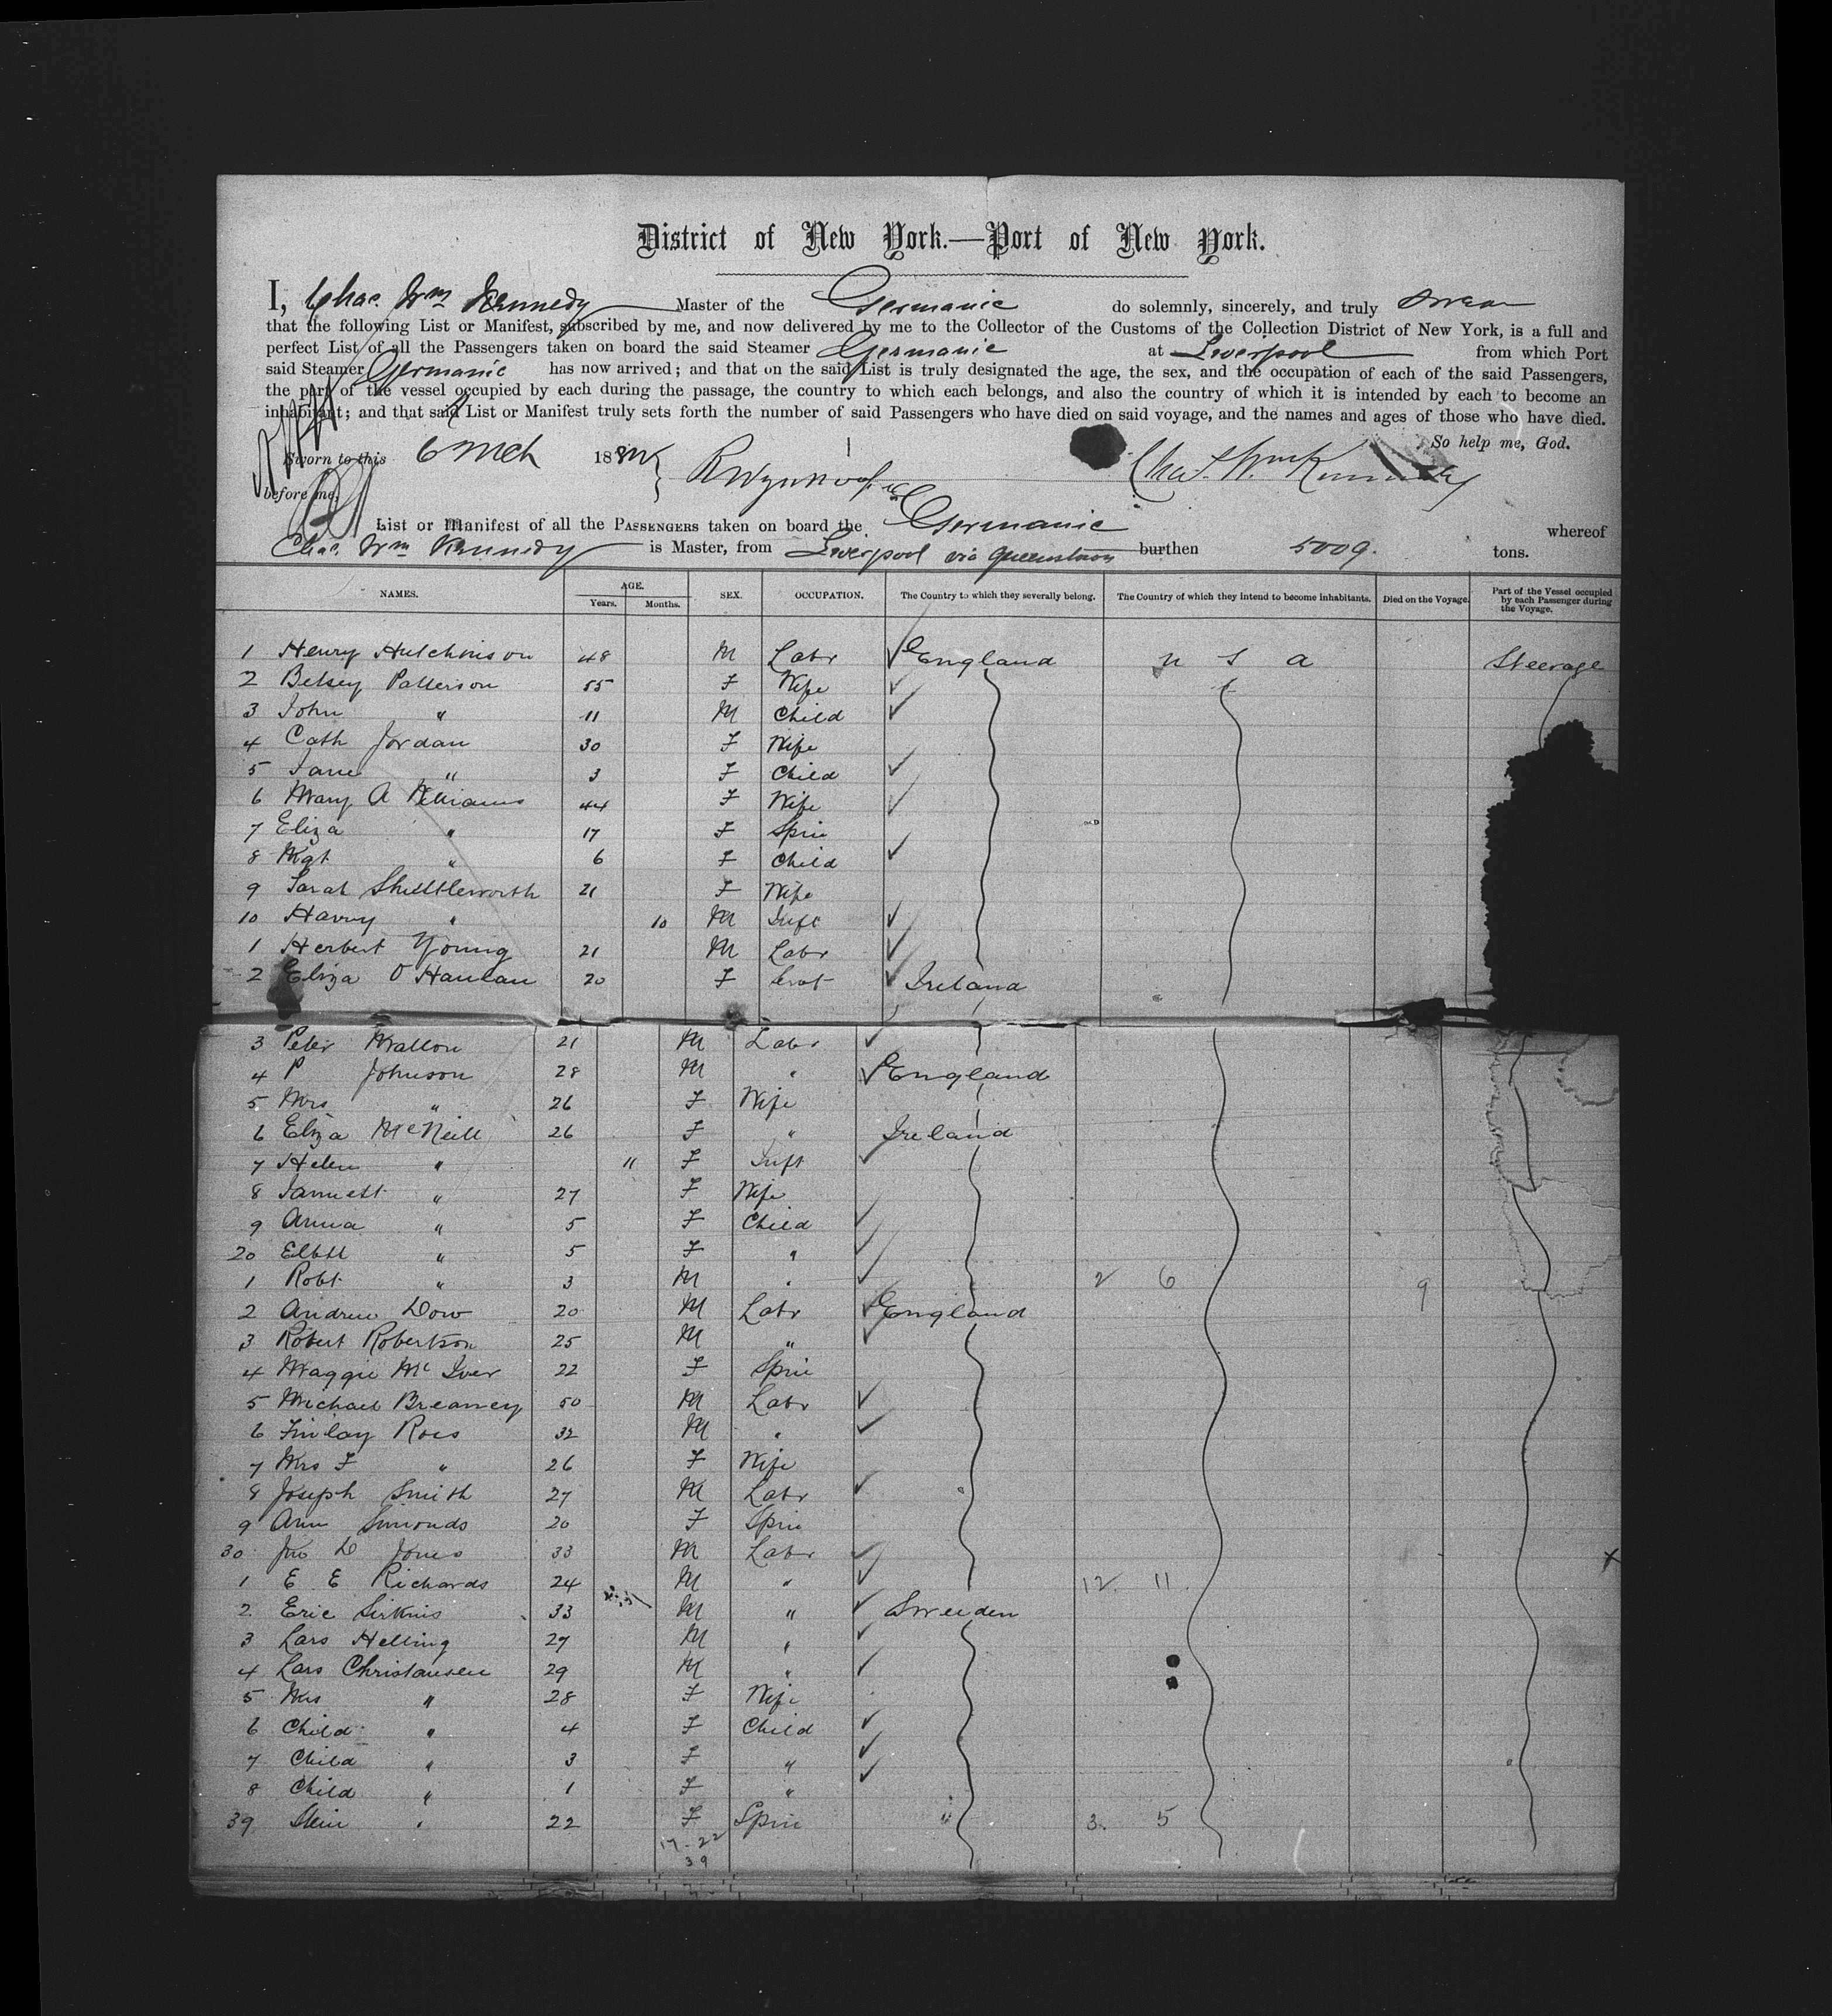 District of New York.—Port of New York.
I, Chas. Wm Kennedy Master of the Germanic do solemnly, sincerely, and truly swear
that the following List or Manifest, subscribed by me, and now delivered by me to the Collector of the Customs of the Collection District of New York, is a full and
perfect List of all the Passengers taken on board the said Steamer Germanic at Liverpool from which Port
said Steamer Germanic has now arrived; and that on the said List is truly designated the age, the sex, and the occupation of each of the said Passengers,
the part of the vessel occupied by each during the passage, the country to which each belongs, and also the country of which it is intended by each to become an
inhabitant; and that said List or Manifest truly sets forth the number of said Passengers who have died on said voyage, and the names and ages of those who have died.
So help me, God.
Sworn to this 6 Mch 188
before me, Chas. Wm Kennedy
List or Manifest of all the PASSENGERS taken on board the Germanic whereof
Chas. Wm Kennedy is Master, from Liverpool via Queenstown burthen 5009. tons.
NAMES. AGE. Years. Months. SEX. OCCUPATION. The Country to which they severally belong. The Country of which they intend to become inhabitants. Died on the Voyage. Part of the Vessel occupied by each Passenger during the Voyage.
1 Henry Hutchinson 48 M Labr England U S A Steerage
2 Betsey Patterson 55 F Wife
3 John " 11 M Child
4 Cath Jordan 30 F Wife
5 Jane " 3 F Child
6 Mary A Williams 44 F Wife
7 Eliza " 17 F Spin
8 Mgt " 6 F Child
9 Sarah Shuttleworth 21 F Wife
10 Harry " 10 M Inft
1 Herbert Young 21 M Labr
2 Eliza O'Hanlan 20 F Servt Ireland
3 Peter Mallon 21 M Labr
4 P Johnson 28 M " England
5 Mrs " 26 F Wife
6 Eliza McNeill 26 F " Ireland
7 Helen " 11 F Inft
8 Jannett " 27 F Wife
9 Anna " 5 F Child
20 " 5 F "
1 Robt " 3 M " 2 6 9
2 Andrew Dow 20 M Labr England
3 Robert Robertson 25 M "
4 Maggie McIver 22 F Spin
5 Michael Breanney 50 M Labr
6 Finlay Ross 32 M "
7 Mrs F " 26 F Wife
8 Joseph Smith 27 M Labr
9 Ann Simonds 20 F Spin
30 Jno D Jones 33 M Labr
1 E E Richards 24 M " 12 11
2 Eric Sirknis 33 M " Sweeden
3 Lars Helling 27 M "
4 Lars Christansen 29 M "
5 Mrs " 28 F Wife
6 Child " 4 F Child
7 Child " 3 F "
8 Child " 1 F "
39 " 22 F Spin " 3 5
17-22
39